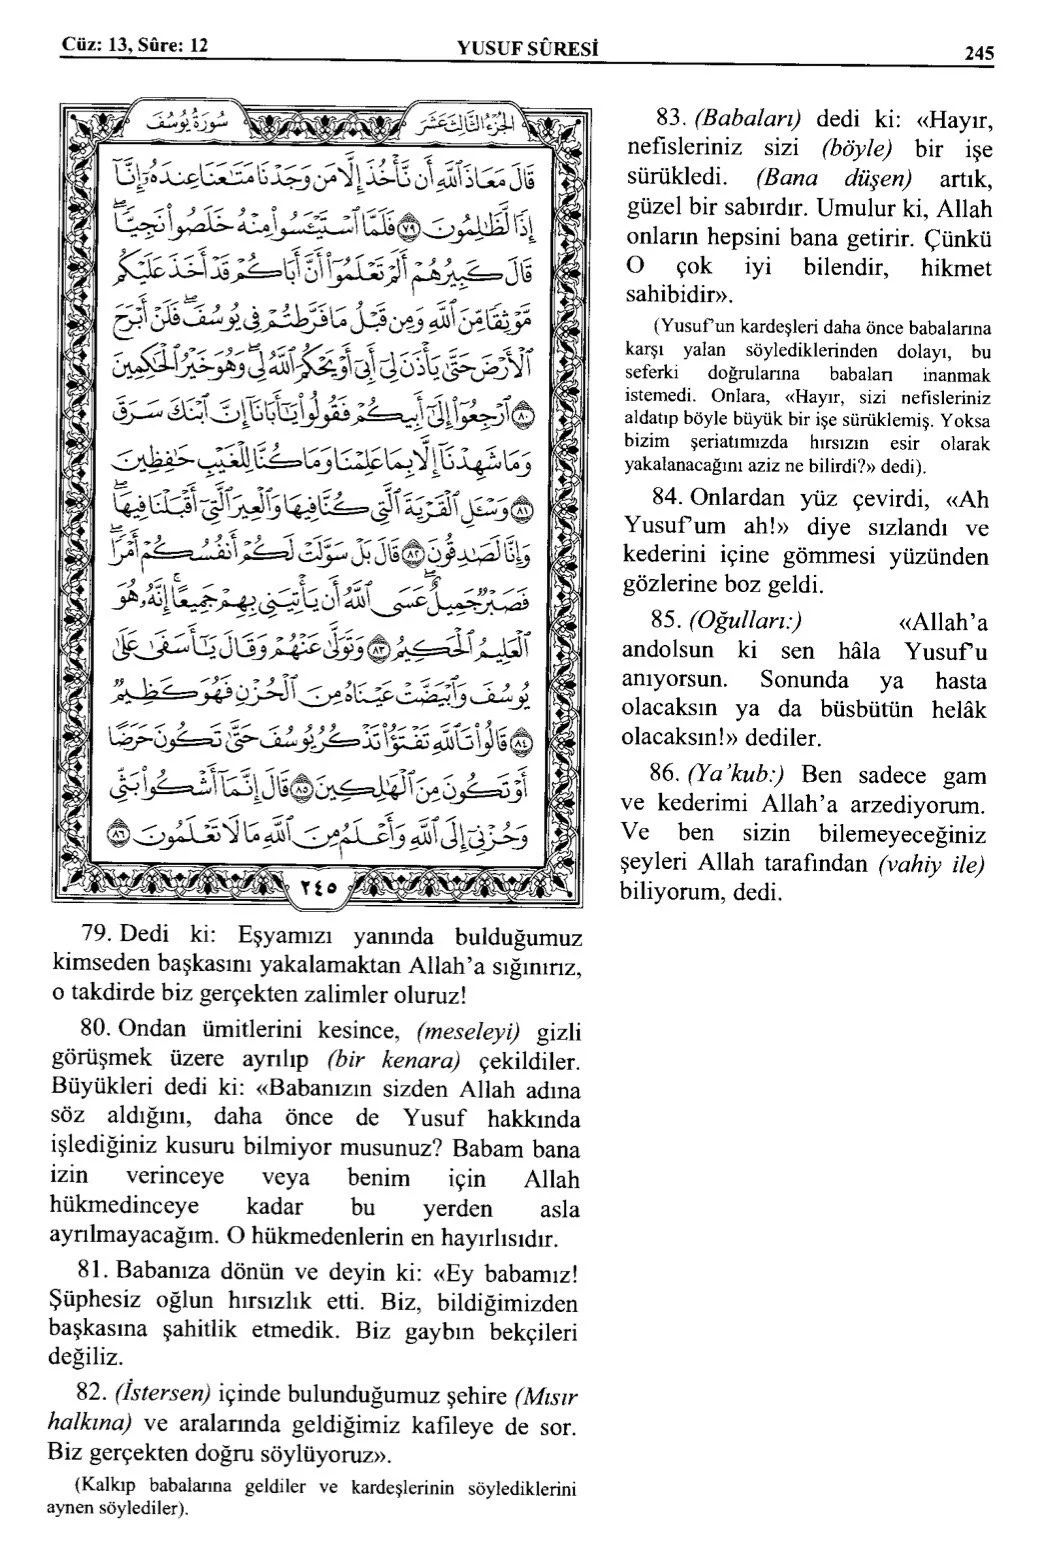 Cüz: 13, Sûre: 12
YUSUF SÛRESİ
245
الجزء الثالث عشر
سورة يوسف
قَالَ مَعَاذَ اللّٰهِ اَنْ نَأْخُذَ اِلَّا مَنْ وَجَدْنَا مَتَاعَنَا عِنْدَهُٓ اِنَّٓا
اِذًا لَظَالِمُونَ ﴿٧٩﴾ فَلَمَّا اسْتَيْـَٔسُوا مِنْهُ خَلَصُوا نَجِيًّاۜ
قَالَ كَبِيرُهُمْ اَلَمْ تَعْلَمُٓوا اَنَّ اَبَاكُمْ قَدْ اَخَذَ عَلَيْكُمْ
مَوْثِقًا مِنَ اللّٰهِ وَمِنْ قَبْلُ مَا فَرَّطْتُمْ فِي يُوسُفَۚ فَلَنْ اَبْرَحَ
الْاَرْضَ حَتّٰى يَأْذَنَ لِٓي اَبِٓي اَوْ يَحْكُمَ اللّٰهُ لِيۚ وَهُوَ خَيْرُ الْحَاكِمِينَ
﴿٨٠﴾ اِرْجِعُٓوا اِلٰٓى اَبِيكُمْ فَقُولُوا يَٓا اَبَانَٓا اِنَّ ابْنَكَ سَرَقَۚ
وَمَا شَهِدْنَٓا اِلَّا بِمَا عَلِمْنَا وَمَا كُنَّا لِلْغَيْبِ حَافِظِينَ
﴿٨١﴾ وَسْـَٔلِ الْقَرْيَةَ الَّتِي كُنَّا فِيهَا وَالْعِيرَ الَّتِٓي اَقْبَلْنَا فِيهَاۜ
وَاِنَّا لَصَادِقُونَ ﴿٨٢﴾ قَالَ بَلْ سَوَّلَتْ لَكُمْ اَنْفُسُكُمْ اَمْرًاۜ
فَصَبْرٌ جَمِيلٌۜ عَسَى اللّٰهُ اَنْ يَأْتِيَنِي بِهِمْ جَمِيعًاۜ اِنَّهُ هُوَ
الْعَلِيمُ الْحَكِيمُ ﴿٨٣﴾ وَتَوَلّٰى عَنْهُمْ وَقَالَ يَٓا اَسَفٰى عَلٰى
يُوسُفَ وَابْيَضَّتْ عَيْنَاهُ مِنَ الْحُزْنِ فَهُوَ كَظِيمٌ
﴿٨٤﴾ قَالُوا تَاللّٰهِ تَفْتَؤُا تَذْكُرُ يُوسُفَ حَتّٰى تَكُونَ حَرَضًا
اَوْ تَكُونَ مِنَ الْهَالِكِينَ ﴿٨٥﴾ قَالَ اِنَّمَٓا اَشْكُوا بَثِّي
وَحُزْنِٓي اِلَى اللّٰهِ وَاَعْلَمُ مِنَ اللّٰهِ مَا لَا تَعْلَمُونَ ﴿٨٦﴾
٢٤٥
79. Dedi ki: Eşyamızı yanında bulduğumuz
kimseden başkasını yakalamaktan Allah’a sığınırız,
o takdirde biz gerçekten zalimler oluruz!
80. Ondan ümitlerini kesince, (meseleyi) gizli
görüşmek üzere ayrılıp (bir kenara) çekildiler.
Büyükleri dedi ki: «Babanızın sizden Allah adına
söz aldığını, daha önce de Yusuf hakkında
işlediğiniz kusuru bilmiyor musunuz? Babam bana
izin verinceye veya benim için Allah
hükmedinceye kadar bu yerden asla
ayrılmayacağım. O hükmedenlerin en hayırlısıdır.
81. Babanıza dönün ve deyin ki: «Ey babamız!
Şüphesiz oğlun hırsızlık etti. Biz, bildiğimizden
başkasına şahitlik etmedik. Biz gaybın bekçileri
değiliz.
82. (İstersen) içinde bulunduğumuz şehire (Mısır
halkına) ve aralarında geldiğimiz kafileye de sor.
Biz gerçekten doğru söylüyoruz».
(Kalkıp babalarına geldiler ve kardeşlerinin söylediklerini
aynen söylediler).
83. (Babaları) dedi ki: «Hayır,
nefisleriniz sizi (böyle) bir işe
sürükledi. (Bana düşen) artık,
güzel bir sabırdır. Umulur ki, Allah
onların hepsini bana getirir. Çünkü
O çok iyi bilendir, hikmet
sahibidir».
(Yusuf’un kardeşleri daha önce babalarına
karşı yalan söylediklerinden dolayı, bu
seferki doğrularına babaları inanmak
istemedi. Onlara, «Hayır, sizi nefisleriniz
aldatıp böyle büyük bir işe sürüklemiş. Yoksa
bizim şeriatımızda hırsızın esir olarak
yakalanacağını aziz ne bilirdi?» dedi).
84. Onlardan yüz çevirdi, «Ah
Yusuf’um ah!» diye sızlandı ve
kederini içine gömmesi yüzünden
gözlerine boz geldi.
85. (Oğulları:) «Allah’a
andolsun ki sen hâla Yusuf’u
anıyorsun. Sonunda ya hasta
olacaksın ya da büsbütün helâk
olacaksın!» dediler.
86. (Ya’kub:) Ben sadece gam
ve kederimi Allah’a arzediyorum.
Ve ben sizin bilemeyeceğiniz
şeyleri Allah tarafından (vahiy ile)
biliyorum, dedi.